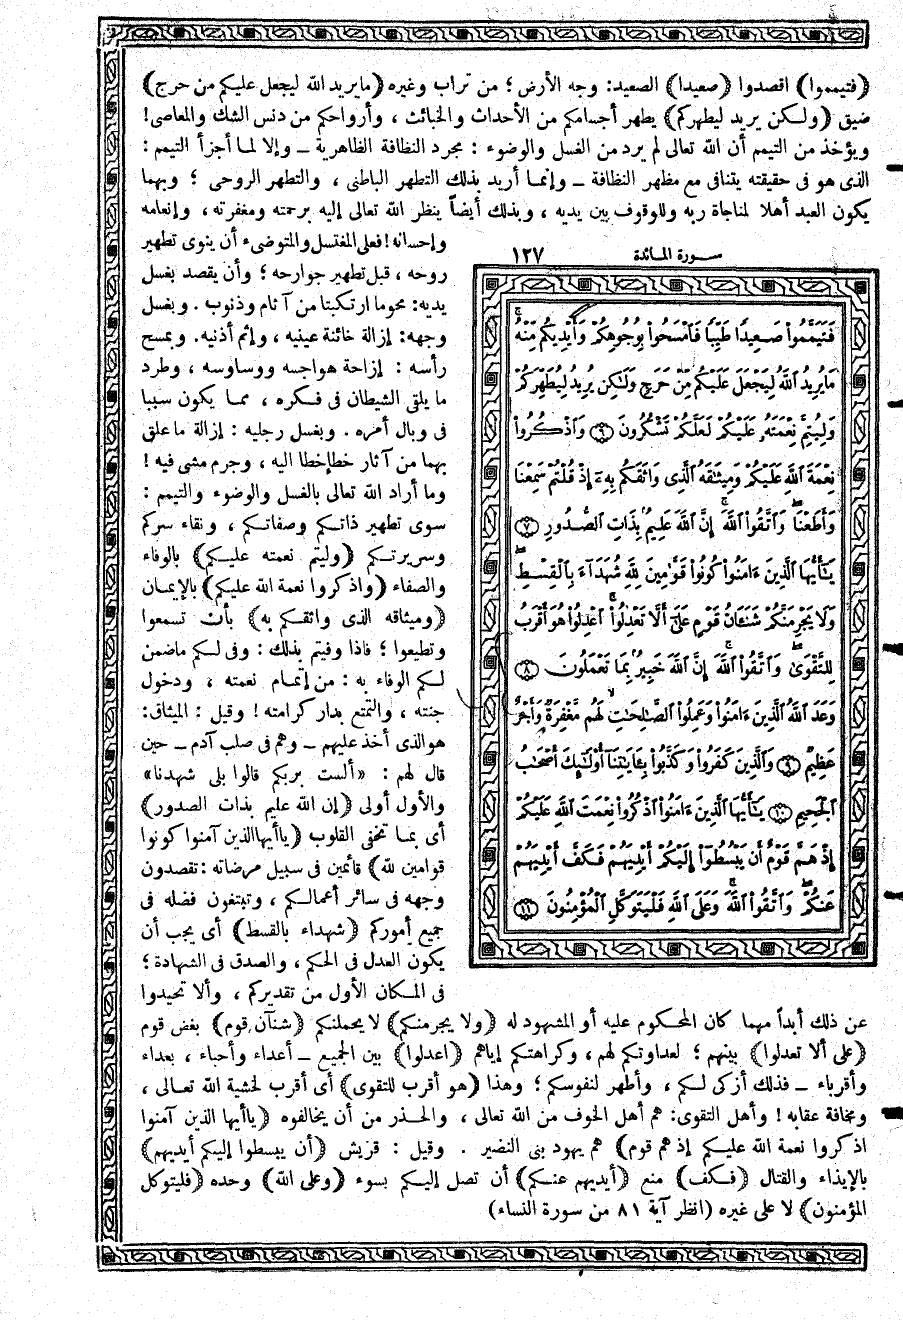 (فتيمموا) اقصدوا (صعيدا) الصعيد: وجه الأرض؛ من تراب وغيره (ما يريد الله ليجعل عليكم من حرج)
ضيق (ولكن يريد ليطهركم) يطهر أجسامكم من الأحداث والخبائث ، وأرواحكم من دنس الشك والمعاصى!
ويؤخذ من التيمم أن الله تعالى لم يرد من الغسل والوضوء : مجرد النظافة الظاهرية ــ وإلا لما أجزأ التيمم :
الذى هو فى حقيقته يتنافى مع مظهر النظافة ــ وإنما أريد بذلك التطهر الباطنى ، والتطهر الروحى ؛ وبهما
يكون العبد أهلا لمناجاة ربه وللوقوف بين يديه ، وبذلك أيضاً ينظر الله تعالى إليه برحمته ومغفرته ، وإنعامه
وإحسانه! فعلى المغتسل والمتوضىء أن ينوى تطهير
روحه ، قبل تطهير جوارحه ؛ وأن يقصد بغسل
يديه: محو ما ارتكبتا من آثام وذنوب . وبغسل
وجهه: إزالة خائنة عينيه ، وإثم أذنيه. وبمسح
رأسه : إزاحة هواجسه ووساوسه ، وطرد
ما يلقى الشيطان فى فكره ، مما يكون سببا
فى وبال أمره . وبغسل رجليه : إزالة ما علق
بهما من آثار خطإ خطا اليه ، وجرم مشى فيه !
وما أراد الله تعالى بالغسل والوضوء والتيمم :
سوى تطهير ذاتكم وصفاتكم ، ونقاء سركم
وسريرتكم (وليتم نعمته عليكم) بالوفاء
والصفاء (واذكروا نعمة الله عليكم) بالإيمان
(وميثاقه الذى واثقكم به) بأن تسمعوا
وتطيعوا ؛ فاذا وفيتم بذلك : وفى لكم ماضمن
لكم الوفاء به : من إتمام نعمته ، ودخول
جنته ، والتمتع بدار كرامته ! وقيل : الميثاق:
هو الذى أخذ عليهم ــ وهم فى صلب آدم ــ حين
قال لهم : «ألست بربكم قالوا بلى شهدنا»
والأول أولى (إن الله عليم بذات الصدور)
أى بما تخفى القلوب (يا أيها الذين آمنوا كونوا
قوامين لله) قائمين فى سبيل مرضاته : تقصدون
وجهه فى سائر أعمالكم ، وتبتغون فضله فى
جميع أموركم (شهداء بالقسط) أى يجب أن
يكون العدل فى الحكم ، والصدق فى الشهادة ؛
فى المكان الأول من تقديركم ، وألا تحيدوا
سورة المائدة ١٣٧
فَتَيَمَّمُوا۟ صَعِيدًا طَيِّبًا فَٱمْسَحُوا۟ بِوُجُوهِكُمْ وَأَيْدِيكُم مِّنْهُ ۚ
مَا يُرِيدُ ٱللَّهُ لِيَجْعَلَ عَلَيْكُم مِّنْ حَرَجٍ وَلَٰكِن يُرِيدُ لِيُطَهِّرَكُمْ
وَلِيُتِمَّ نِعْمَتَهُۥ عَلَيْكُمْ لَعَلَّكُمْ تَشْكُرُونَ ⑥ وَٱذْكُرُوا۟
نِعْمَةَ ٱللَّهِ عَلَيْكُمْ وَمِيثَٰقَهُ ٱلَّذِى وَاثَقَكُم بِهِۦٓ إِذْ قُلْتُمْ سَمِعْنَا
وَأَطَعْنَا ۖ وَٱتَّقُوا۟ ٱللَّهَ ۚ إِنَّ ٱللَّهَ عَلِيمٌۢ بِذَاتِ ٱلصُّدُورِ ⑦
يَٰٓأَيُّهَا ٱلَّذِينَ ءَامَنُوا۟ كُونُوا۟ قَوَّٰمِينَ لِلَّهِ شُهَدَآءَ بِٱلْقِسْطِ ۖ
وَلَا يَجْرِمَنَّكُمْ شَنَـَٔانُ قَوْمٍ عَلَىٰٓ أَلَّا تَعْدِلُوا۟ ۚ ٱعْدِلُوا۟ هُوَ أَقْرَبُ
لِلتَّقْوَىٰ ۖ وَٱتَّقُوا۟ ٱللَّهَ ۚ إِنَّ ٱللَّهَ خَبِيرٌۢ بِمَا تَعْمَلُونَ ⑧
وَعَدَ ٱللَّهُ ٱلَّذِينَ ءَامَنُوا۟ وَعَمِلُوا۟ ٱلصَّٰلِحَٰتِ ۙ لَهُم مَّغْفِرَةٌ وَأَجْرٌ
عَظِيمٌ ⑨ وَٱلَّذِينَ كَفَرُوا۟ وَكَذَّبُوا۟ بِـَٔايَٰتِنَآ أُو۟لَٰٓئِكَ أَصْحَٰبُ
ٱلْجَحِيمِ ⑩ يَٰٓأَيُّهَا ٱلَّذِينَ ءَامَنُوا۟ ٱذْكُرُوا۟ نِعْمَتَ ٱللَّهِ عَلَيْكُمْ
إِذْ هَمَّ قَوْمٌ أَن يَبْسُطُوٓا۟ إِلَيْكُمْ أَيْدِيَهُمْ فَكَفَّ أَيْدِيَهُمْ
عَنكُمْ ۖ وَٱتَّقُوا۟ ٱللَّهَ ۚ وَعَلَى ٱللَّهِ فَلْيَتَوَكَّلِ ٱلْمُؤْمِنُونَ ⑪
عن ذلك أبداً مهما كان المحكوم عليه أو المشهود له (ولا يجرمنكم) لا يحملنكم (شنآن قوم) بغض قوم
(على ألا تعدلوا) بينهم ؛ لعداوتكم لهم ، وكراهتكم إياهم (اعدلوا) بين الجميع ــ أعداء وأحباء ، بعداء
وأقرباء ــ فذلك أزكى لكم ، وأطهر لنفوسكم ؛ وهذا (هو أقرب للتقوى) أى أقرب لخشية الله تعالى ،
ومخافة عقابه ! وأهل التقوى: هم أهل الخوف من الله تعالى ، والحذر من أن يخالفوه (يا أيها الذين آمنوا
اذكروا نعمة الله عليكم إذ هم قوم) هم يهود بنى النضير . وقيل : قريش (أن يبسطوا إليكم أيديهم)
بالإيذاء والقتال (فكف) منع (أيديهم عنكم) أن تصل إليكم بسوء (وعلى الله) وحده (فليتوكل
المؤمنون) لا على غيره (انظر آية ٨١ من سورة النساء)